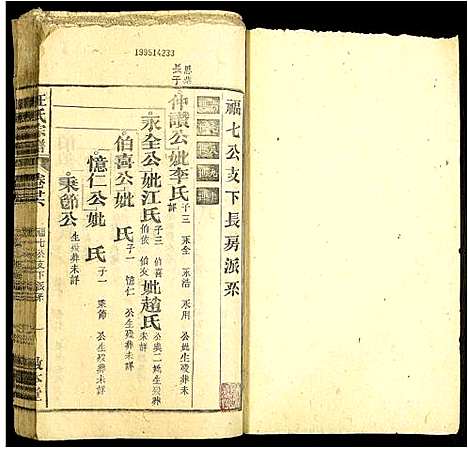 199514233
福七公支下長房派系
思恭
長子
仲讚公妣李氏 子三 永全 永浩 永用 公妣生歿葬未詳
永全公妣江氏 子三 伯喜 伯依 伯友 妣趙氏 公與二妣生歿葬未詳
伯喜公妣 氏 子一 憶仁 公生歿葬未詳
憶仁公妣 氏 子一 秉節 公生歿葬未詳
秉節公 生歿葬未詳
汪氏宗譜
福七公支下派系
一
敦本堂